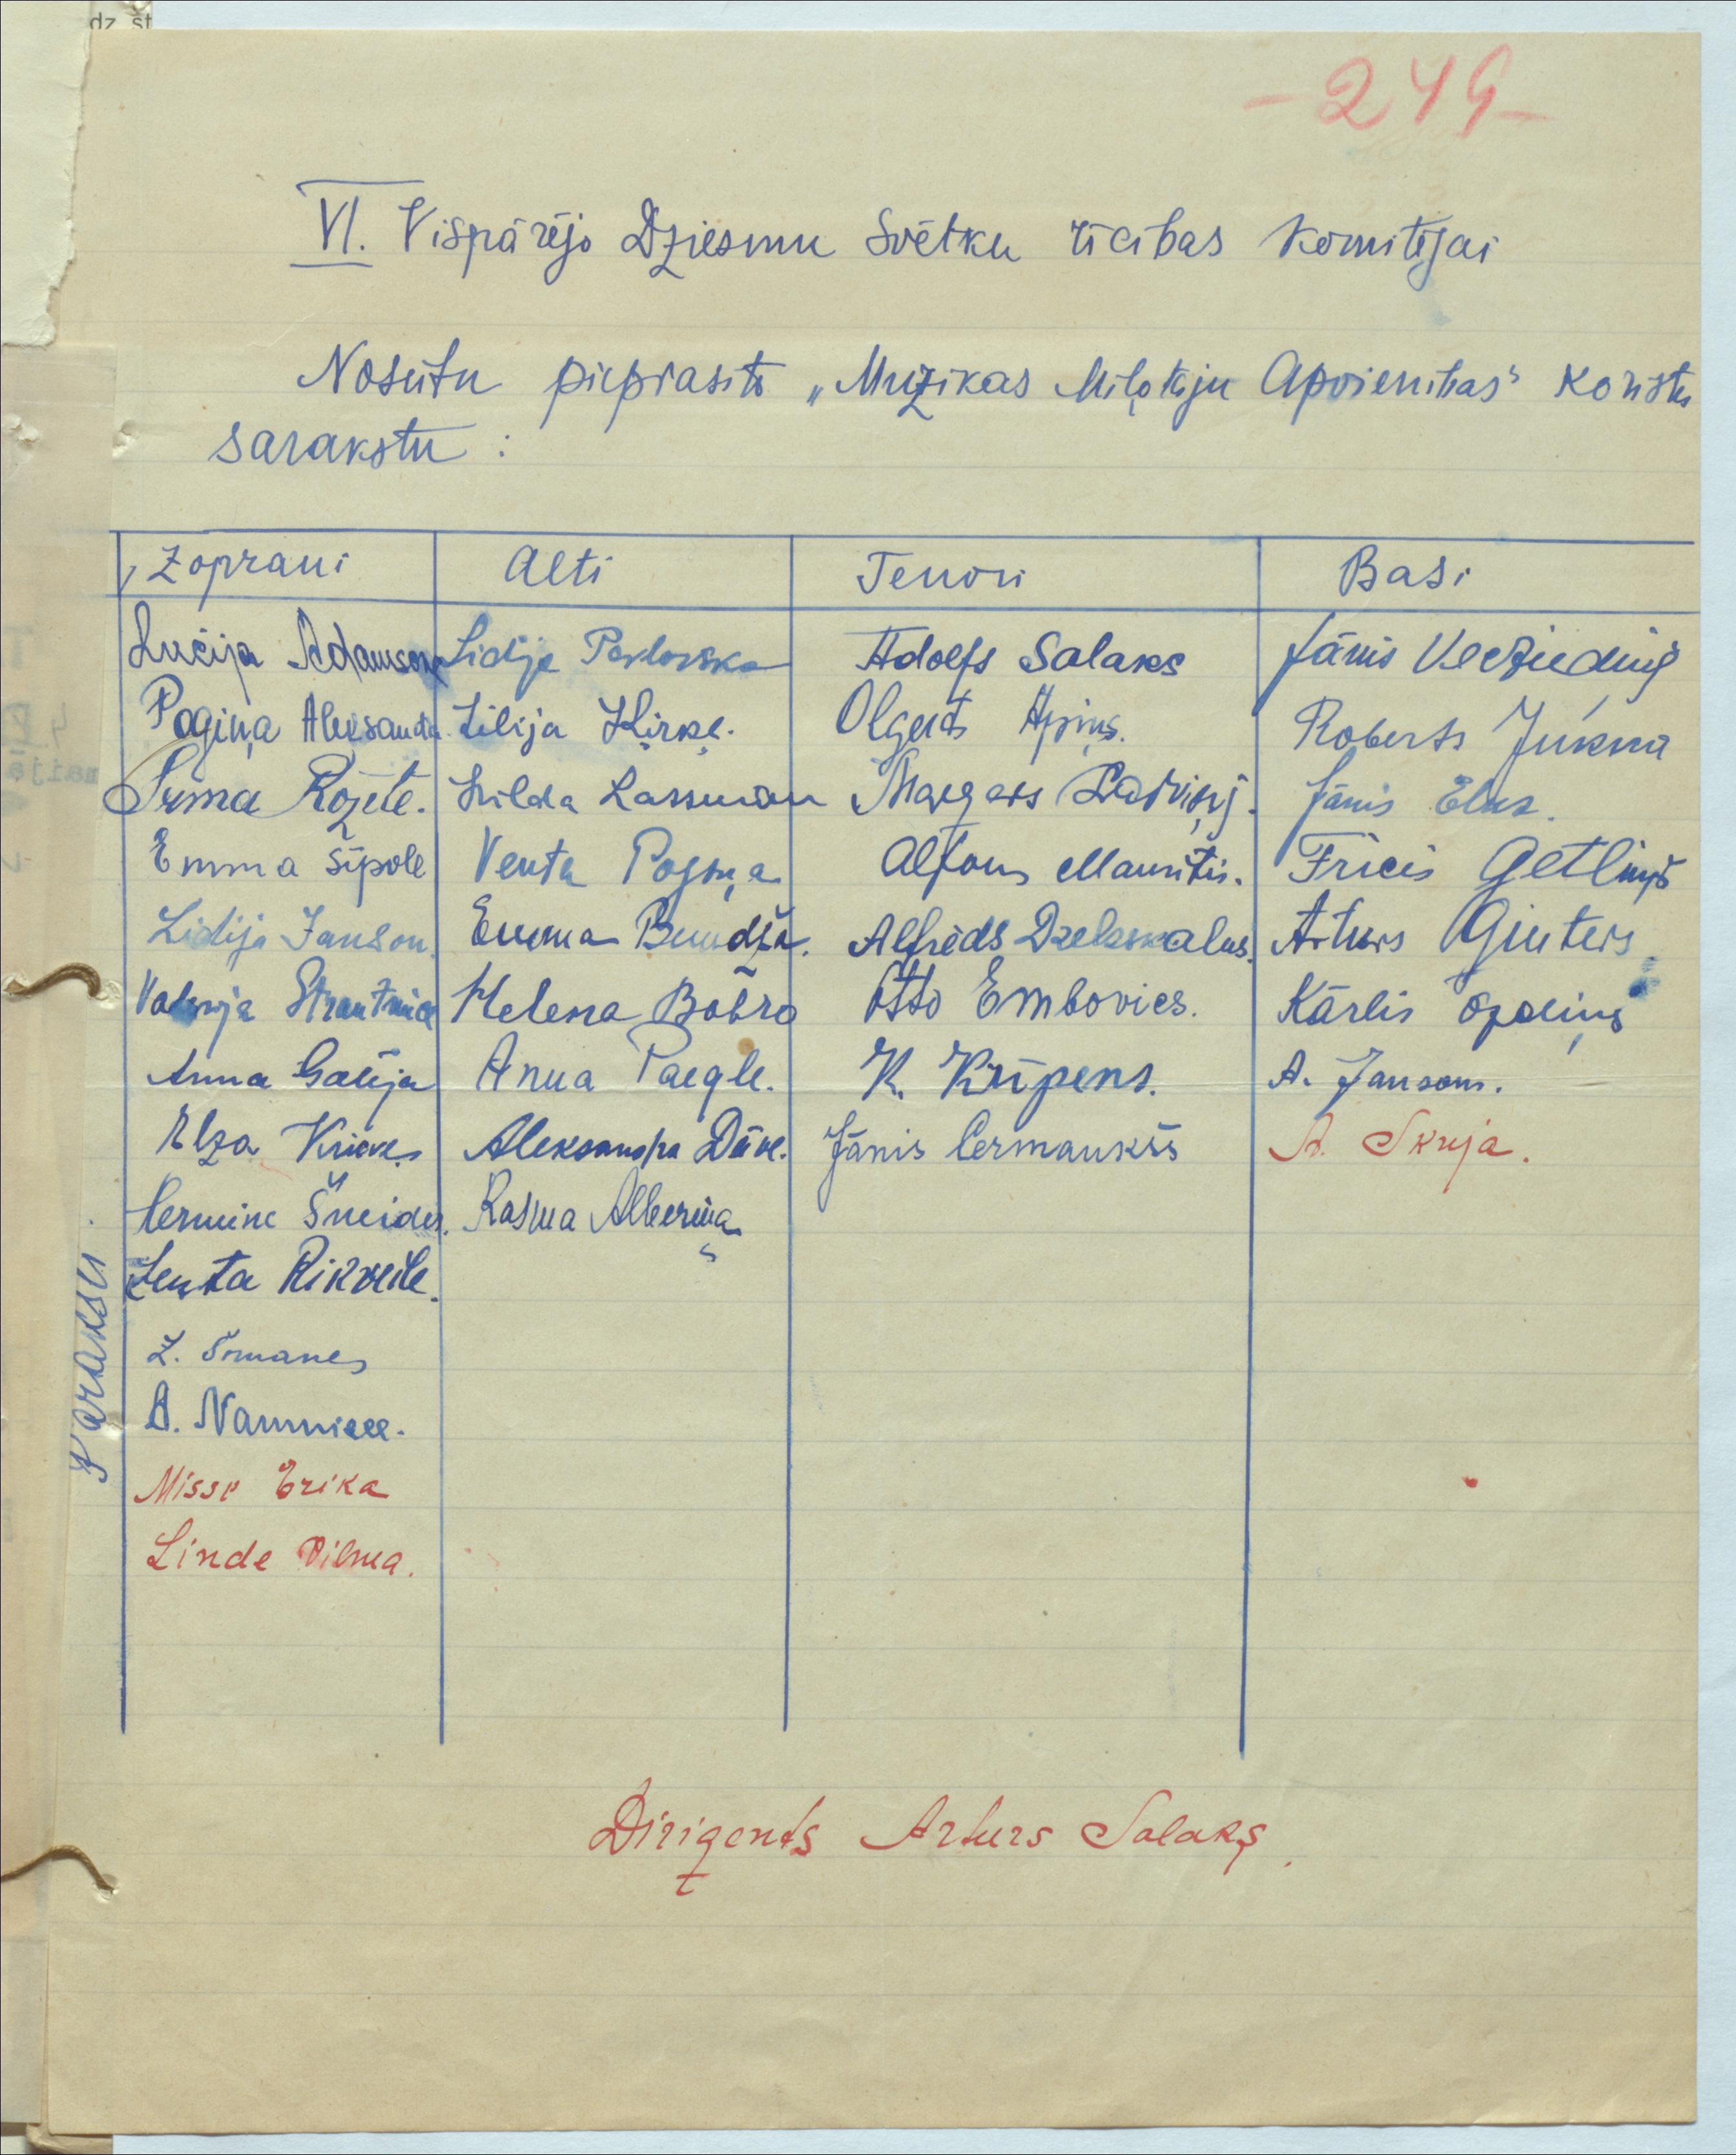 dz. st
- 249 -
VI. Vispārējo Dziesmu Svētku rīcības komitejai
Nosūtu pieprasīto „Muzikas Miļotāju Apvienības" koristu
sarakstu :
Zoprani Alti Tenori Basi
Lucija Adamson Lidija Pavlovska Adolfs Salaks Jānis
Pogiņa Aleksandra Lilija Ķirķe. Olgerts Apiņš. Roberts Junkma
Irma Rozīte. Hilda Lassman Margers Jānis
Emma Sīpole Venta Pogiņa Alfons Mauritis. Fricis Getliņš
Lidija Janson. Emma Bundža. Alfrēds Dzelzkalns. Arturs Ginters.
Valerija Strautniece Helena Bobro Otto Embovics. Kārlis Ozoliņš
Anna Galēja Anna Paegle. K. Krīpens. A. Jansons.
Elza Krieke Aleksandra Dūve. Jānis Cermaukšs A. Skuja.
Hermine Šneider. Rasma Alberiņa
Zenta Rikveile.
Z. Šmanes
A. Namniece.
Misse Erika
Linde Vilma.
Paraksti
Dirigents Arturs Salaks.